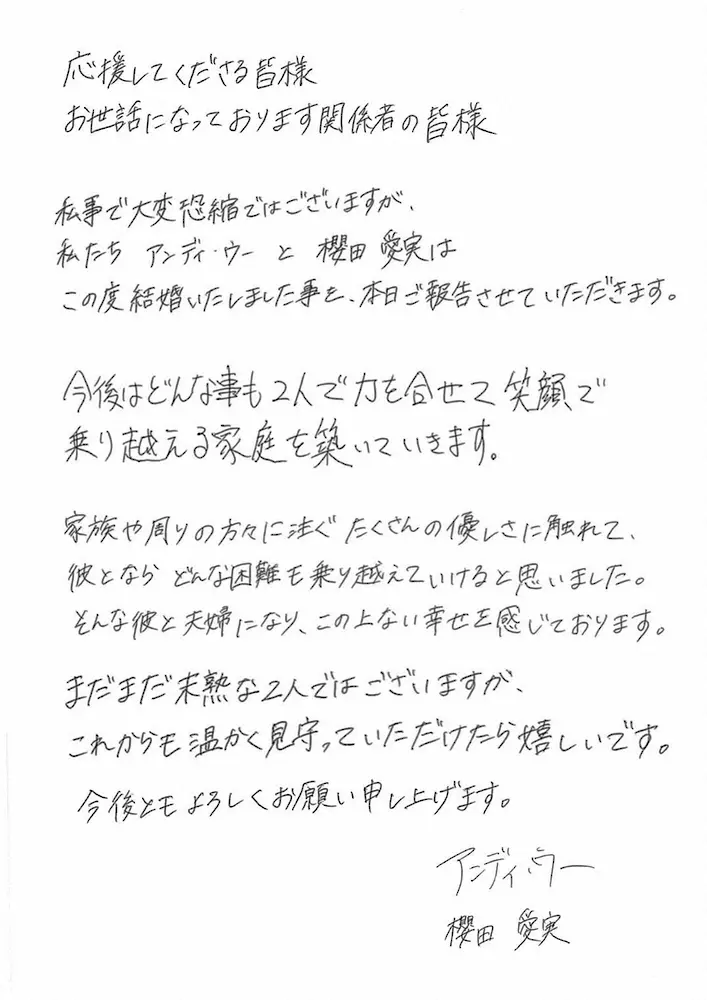 応援してくださる皆様
お世話になっております関係者の皆様
私事で大変恐縮ではございますが、
私たち アンディ・ウー と 櫻田 愛実は
この度結婚いたしました事を、本日ご報告させていただきます。
今後はどんな事も2人で力を合せて笑顔で
乗り越える家庭を築いていきます。
家族や周りの方々に注ぐ たくさんの優しさに触れて、
彼となら どんな困難も乗り越えていけると思いました。
そんな彼と夫婦になり、この上ない幸せを感じております。
まだまだ未熟な2人ではございますが、
これからも温かく見守っていただけたら嬉しいです。
今後ともよろしくお願い申し上げます。
アンディ・ウー
櫻田 愛実